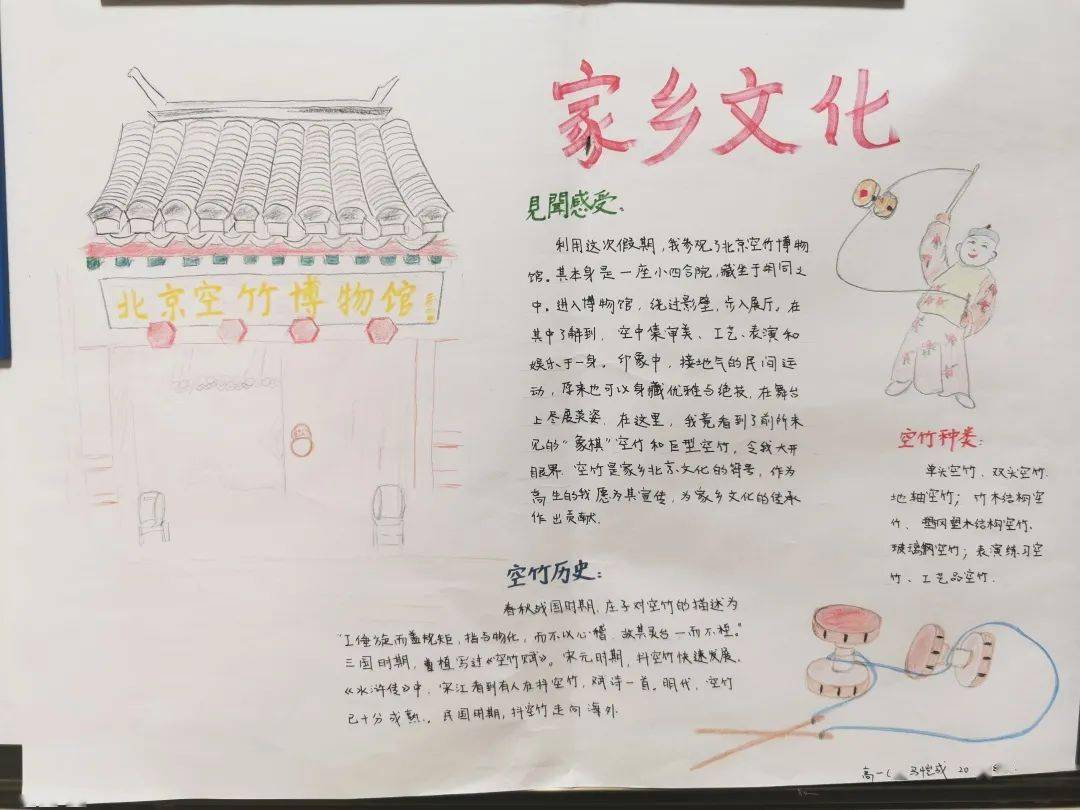 家乡文化
北京空竹博物馆
見聞感受:
利用这次假期,我参观了北京空竹博物
馆。其本身是一座小四合院,藏坐于胡同之
中。进入博物馆,绕过影壁,步入展厅。在
其中了解到,空中集审美、工艺、表演和
娱乐于一身。印象中,接地气的民间运
动,原来也可以身藏优雅与绝技,在舞台
上尽展英姿。在这里,我竟看到了前所未
见的“象棋”空竹和巨型空竹,令我大开
眼界.空竹是家乡北京文化的符号,作为
高生的我愿为其宣传,为家乡文化的传承
作出贡献.
空竹种类:
单头空竹、双头空竹.
地轴空竹;竹木结构空
竹、塑木结构空竹.
玻璃钢空竹;表演练习空
竹、工艺品空竹.
空竹历史:
春秋战国时期,庄子对空竹的描述为
“工倕旋而盖规矩,指与物化,而不以心稽,故其灵台一而不桎。”
三国时期,曹植写过《空竹赋》。宋元时期,抖空竹快速发展.
《水浒传》中,宋江看到有人在抖空竹,赋诗一首。明代,空竹
已十分成熟.民国时期,抖空竹走向海外.
高一 马恺成 20